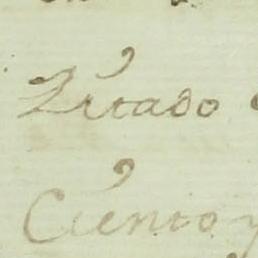 Citado
Ciento y